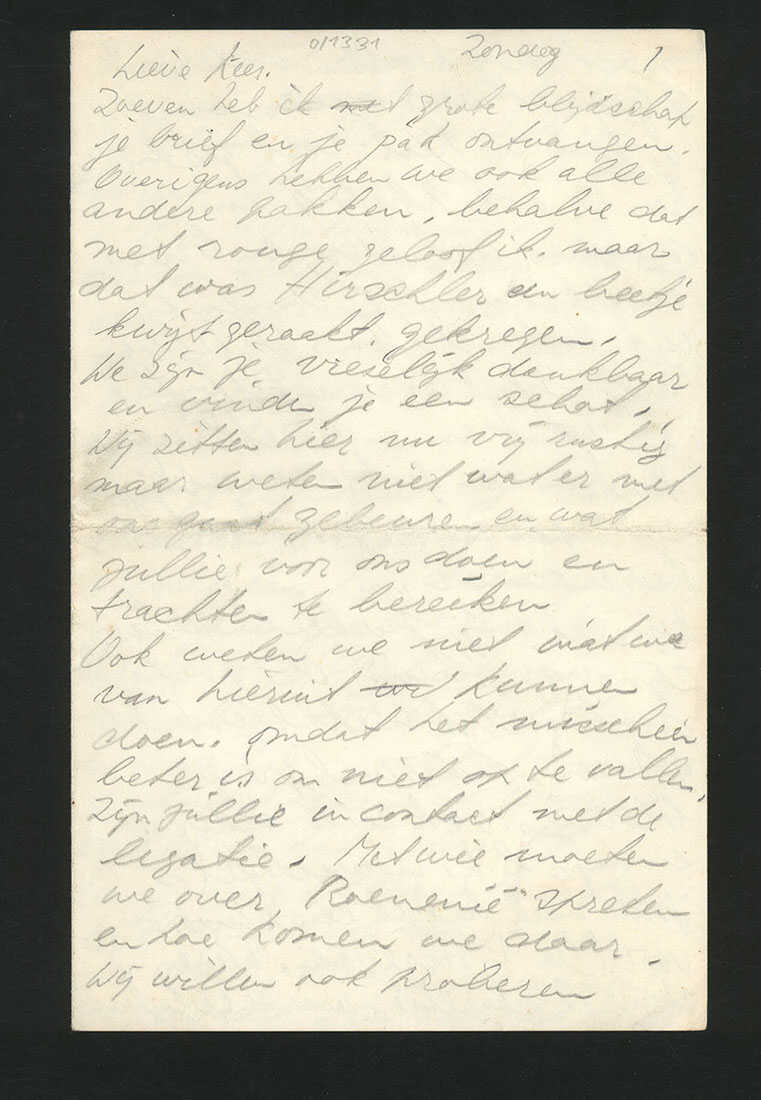 0/1331 Zondag 1
Lieve Kees.
Zoeven heb ik met grote blijdschap
je brief en je pak ontvangen.
Overigens hebben we ook alle
andere pakken, behalve dat
met rouge geloof ik. maar
dat was Hirschler een beetje
kwijt geraakt. gekregen.
We zijn je vreselijk dankbaar
en vinden je een schat.
Wij zitten hier nu vrij rustig
maar weten niet wat er met
ons gaat gebeuren en wat
jullie voor ons doen en
trachten te bereiken
Ook weten we niet wat we
van hieruit kunnen
doen. omdat het misschien
beter is om niet op te vallen.
Zijn jullie in contact met de
legatie. Met wie moeten
we over „Roemenië" spreken
en hoe komen we daar.
Wij willen ook proberen